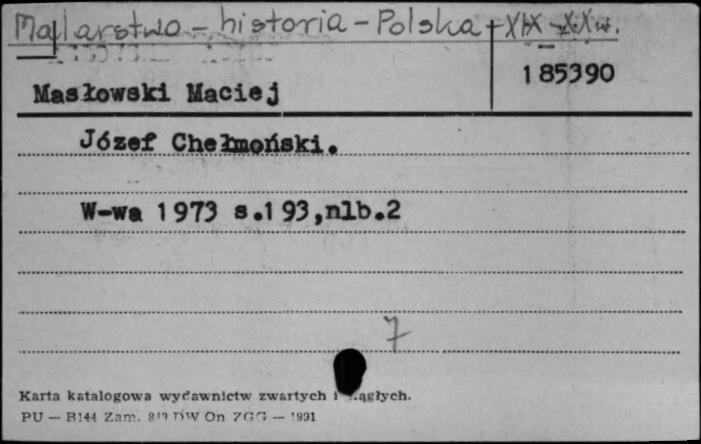 Malarstwo - historia - Polska - XIX - XX w.
185390
Masłowski Maciej
Józef Chełmoński.
W-wa 1973 s.193,nlb.2
7
Karta katalogowa wydawnictw zwartych i ciągłych.
PU — B144 Zam. DW On ZGG — 1991